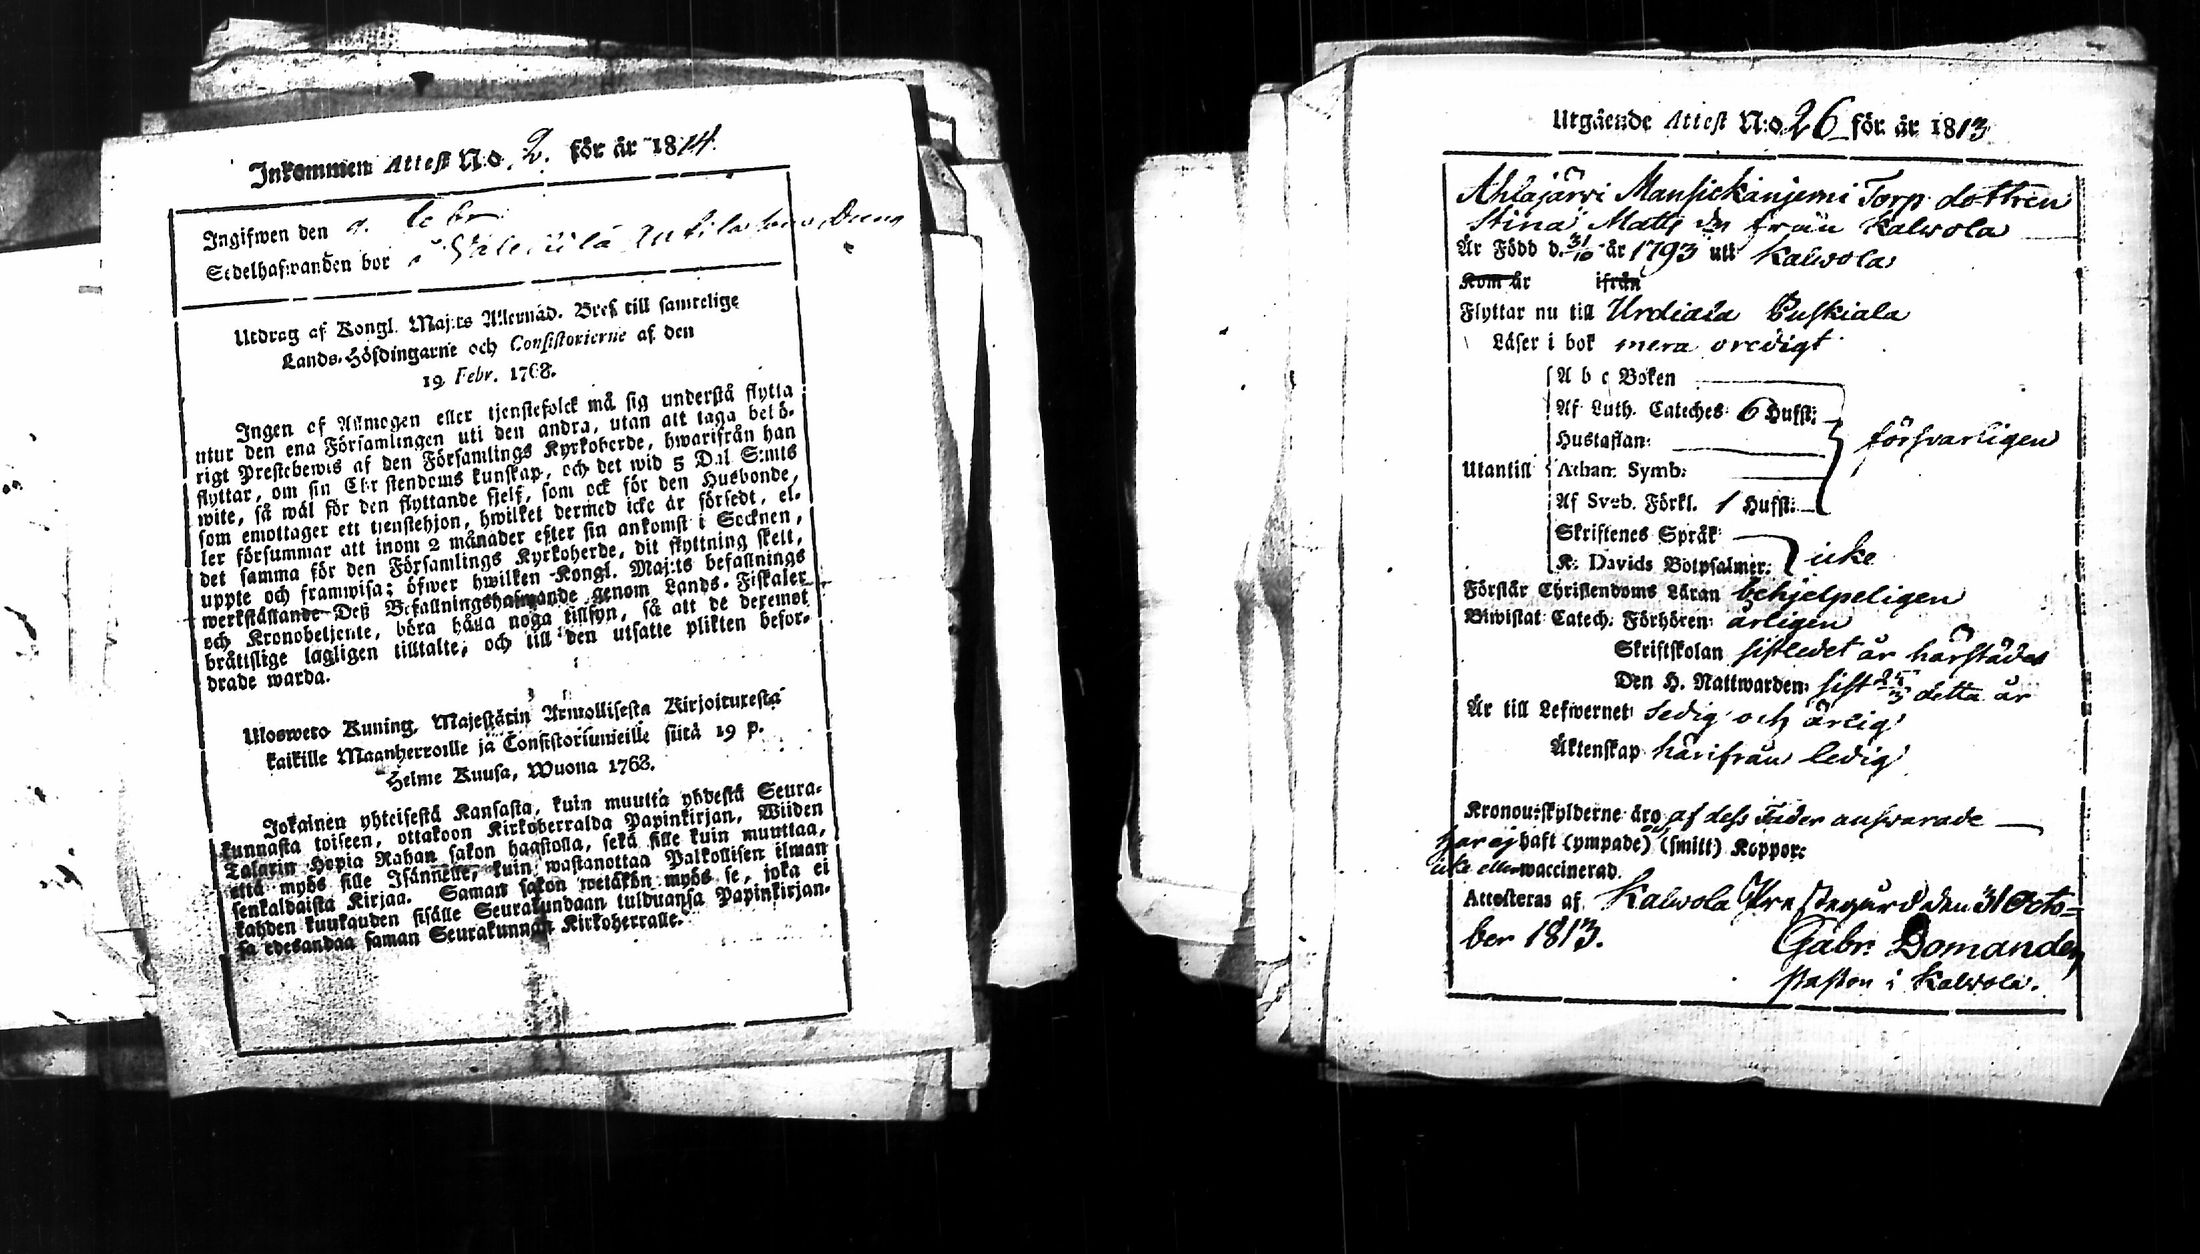 Inkommen Attest N:o 2. för år 1814.
Ingifwen den 9. Febr
Sedelhafwanden bor i
Utdrag af Kongl. Maj:ts Allernåd. Bref till samtelige
Lands-Höfdingarne och Consistorierne af den
19 Febr. 1768.
Ingen af Allmogen eller tjenstefolck må sig understå flytta
utur den ena Församlingen uti den andra, utan att taga behö-
rigt Prestebewis af den Församlings Kyrkoherde, hwarifrån han
flyttar, om sin Christendoms kunskap, och det wid 5 Dal. S:mts
wite, så wäl för den flyttande sjelf, som ock för den Husbonde,
som emottager ett tjenstehjon, hwilket dermed icke är försedt, el-
ler försummar att inom 2 månader efter sin ankomst i Socknen,
det samma för den Församlings Kyrkoherde, dit flyttning skett,
uppte och framwisa; öfwer hwilken Kongl. Maj:ts befallnings
werkställande Deß Befallningshafwande genom Lands-Fiskaler
och Kronobetjente, böra hålla noga tillsyn, så att de deremot
bråttslige lagligen tilltalte, och till den utsatte plikten befor-
drade warda.
Uloswero Kuning. Majestätin Armollisesta Kirjoituxesta
kaikille Maanherroille ja Consistoriumeille siitä 19 p.
Helme Kuusa, Wuona 1768.
Jokainen yhteisestä Kansasta, kuin muutta yhdestä Seura-
kunnasta toiseen, ottakoon Kirkoherralda Papinkirjan, Wiiden
Talarin Hopia Rahan sakon haastolla, sekä sille kuin muuttaa,
että myös sille Isännelle, kuin wastanottaa Palkollisen ilman
senkaldaista Kirjaa. Saman sakon wetäkön myös se, joka ei
kahden kuukauden sisälle Seurakundaan tulduansa Papinkirjan-
sa edesandaa saman Seurakunnan Kirkoherralle.
Utgående Attest N:o 26 för år 1813
Ahlajärvi Mansickaniemi Torp dottren
Stina Matts dr från Kalvola
Är Född d. 31/10 år 1793 uti Kalvola
Kom år ifrån
Flyttar nu till Urdiala Puskiala
Läser i bok mera oredigt
A b c Boken
Af Luth. Cateches: 6 Hufst:
Hustaflan: försvarligen
Utantill Athan. Symb:
Af Sveb. Förkl. 1 Hufst:
Skriftenes Språk
K. Davids Botpsalmer: icke
Förstår Christendoms Läran behjelpeligen
Biwistat Catech. Förhören: årligen
Skriftskolan sistledet år härstädes
Den H. Nattwarden: sist 25/3 detta år
Är till Lefwernet sedig och ärlig
Äktenskap härifrån ledig
Kronoutskylderne äro af dess Fader answarade
har ej haft (ympade) (smitt) Koppor:
icke eller waccinerad.
Attesteras af Kalvola Prestegård den 31 Octo=
ber 1813. Gabr. Domander
Pastor i Kalvola.